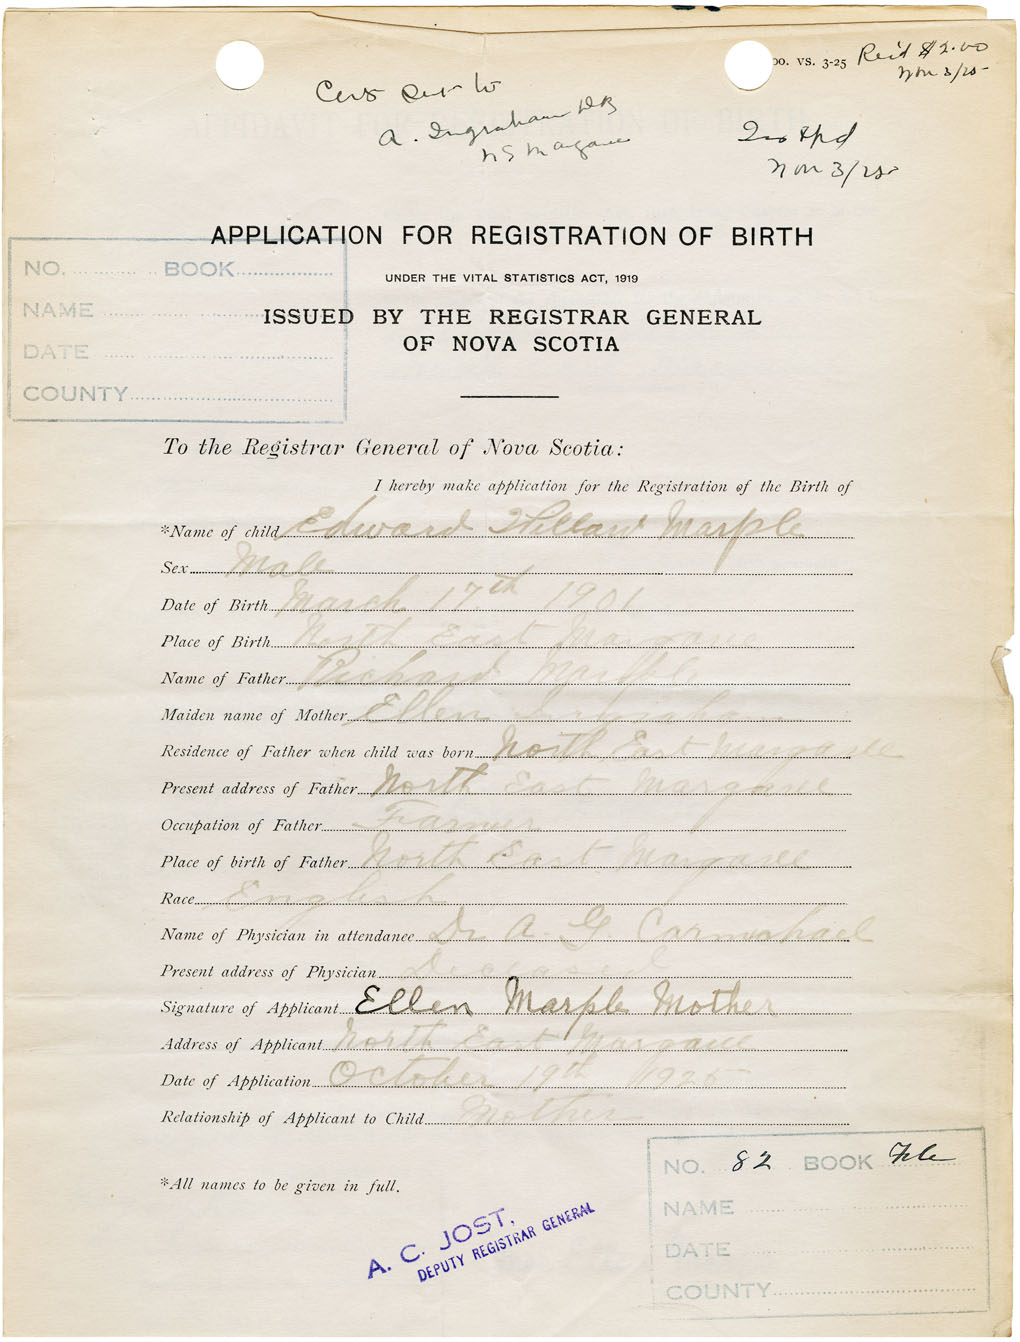 00. VS. 3-25 Rec'd $2.00
Nov 3/25
Cert sent to
A. Ingraham
N E Margaree
Nov 3/25
APPLICATION FOR REGISTRATION OF BIRTH
UNDER THE VITAL STATISTICS ACT, 1919
ISSUED BY THE REGISTRAR GENERAL
OF NOVA SCOTIA
NO. BOOK
NAME
DATE
COUNTY
To the Registrar General of Nova Scotia:
I hereby make application for the Registration of the Birth of
*Name of child Edward Marple
Sex Male
Date of Birth March 17th 1901
Place of Birth North East Margaree
Name of Father Richard Marple
Maiden name of Mother Ellen Ingraham
Residence of Father when child was born North East Margaree
Present address of Father North East Margaree
Occupation of Father Farmer
Place of birth of Father North East Margaree
Race English
Name of Physician in attendance Dr A. G. Carmichael
Present address of Physician Deceased
Signature of Applicant Ellen Marple Mother
Address of Applicant North East Margaree
Date of Application October 19th 1925
Relationship of Applicant to Child Mother
*All names to be given in full.
A. C. JOST,
DEPUTY REGISTRAR GENERAL
NO. 82 BOOK File
NAME
DATE
COUNTY